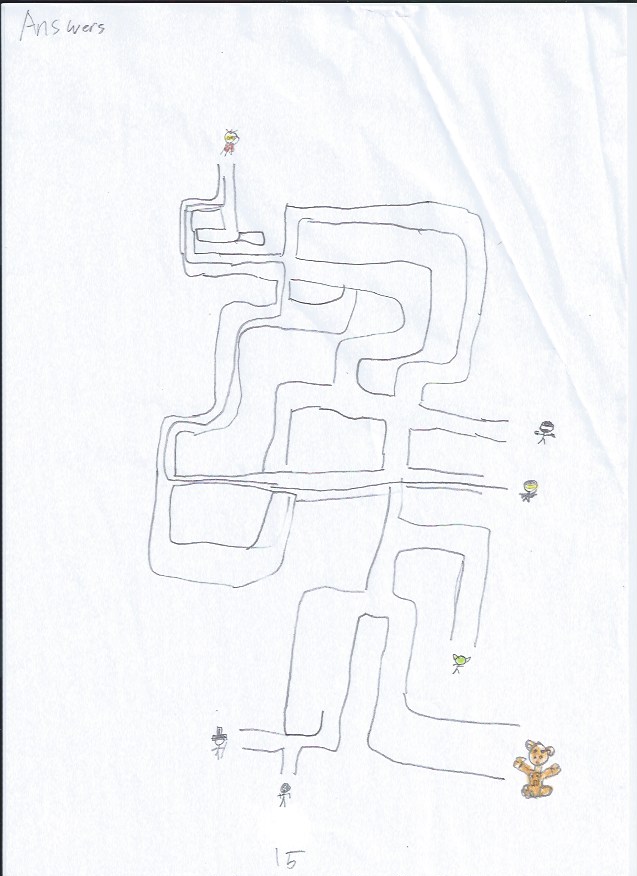 Answers
15